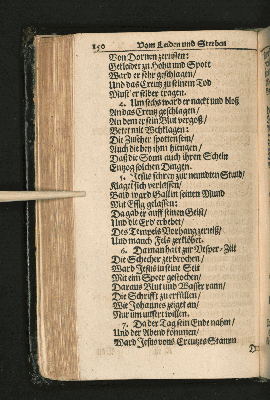 150 Vom Leiden und Sterben
Von Dornen zerrissen:
Getleidet zu Hohn und Spott
Ward er sehr geschlagen/
Und das Creutz zu seinem Tod
Must er selber tragen.
4. Um sechs ward er nackt und bloß
An das Creutz geschlagen/
An dem er sein Blut vergoß/
Betet mit Wehklagen:
Die Zuseher spotten sein/
Auch die bey ihm hiengen/
Daß die Sonn auch ihren Schein
Entzog solchen Dingen.
5. Jesus schrey zur neundten Stund/
Klagt sich verlassen/
Bald ward Gall in seinen Mund
Mit Essig gelassen:
Da gab er auff seinen Geist/
Und die Erd erbebet/
Des Tempels Vorhang zerreist/
Und manch Fels zerklöbet.
6. Da man hatt zur Vesper-Zeit
Die Schecher zerbrochen/
Ward Jesus in seine Seit
Mit eim Speer gestochen/
Daraus Blut und Wasser rann/
Die Schrifft zu erfüllen/
Wie Johannes zeiget an/
Nur um unsert willen.
7. Da der Tag sein Ende nahm/
Und der Abend kommen/
Ward Jesus vons Creutzes Stamm